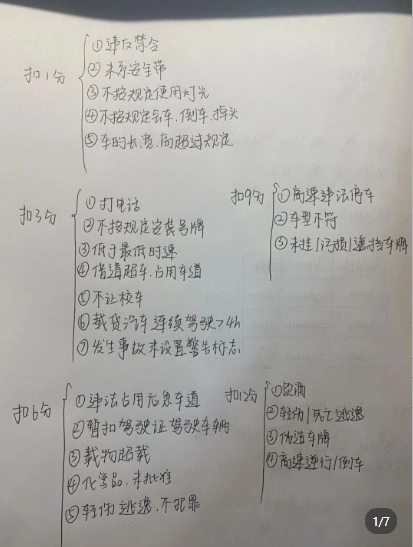 扣1分
①违反禁令
②未系安全带
③不按规定使用灯光
④不按规定会车、倒车、掉头
⑤车的长、宽、高超过规定
扣3分
①打电话
②不按规定安装号牌
③低于最低时速
④借道超车、占用车道
⑤不让校车
⑥载货汽车连续驾驶>4h
⑦发生事故未设置警告标志
扣9分
①高速违法停车
②车型不符
③未挂/污损/遮挡车牌
扣6分
①违法占用应急车道
②暂扣驾驶证驾驶车辆
③载物超载
④化学品、未批准
⑤轻伤逃逸、不犯罪
扣12分
①饮酒
②轻伤/死亡逃逸
③伪造车牌
④高速逆行/倒车
1/7